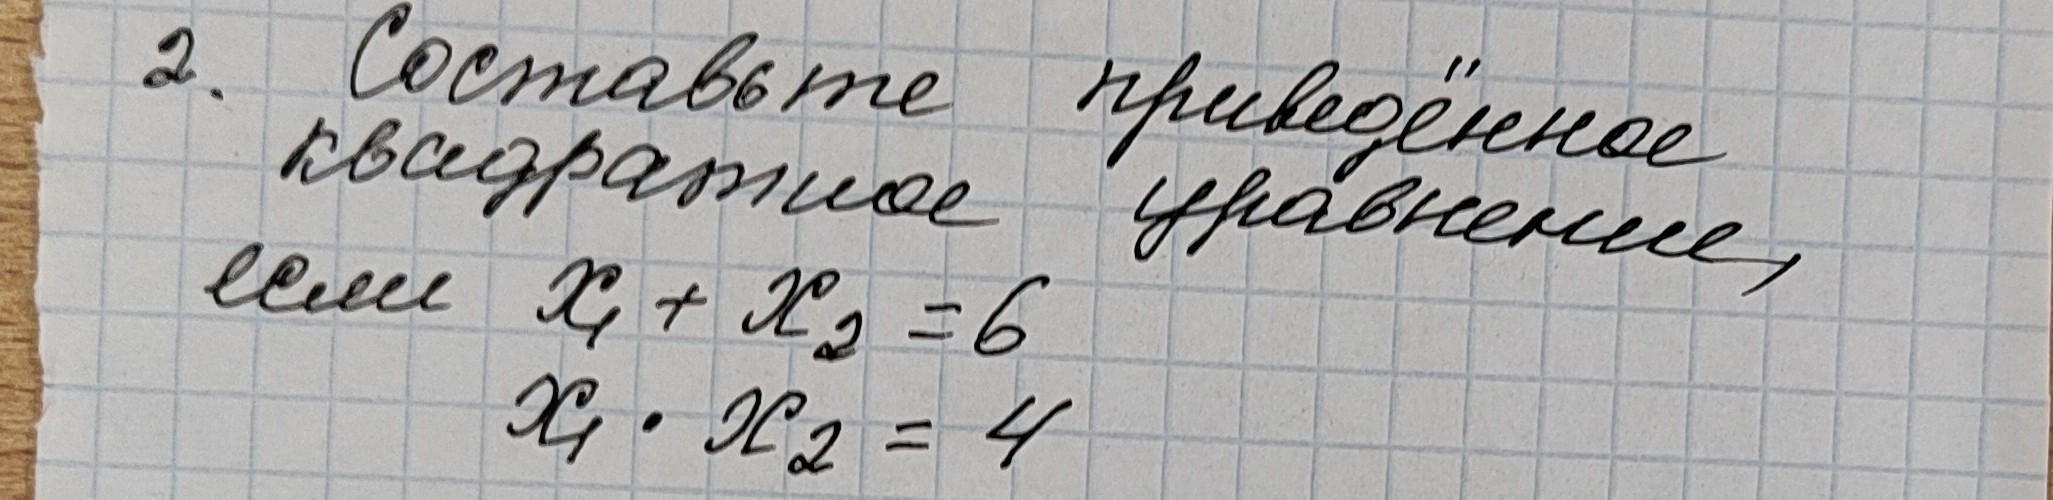 2. Составьте приведённое
квадратное уравнение,
если x₁ + x₂ = 6
x₁ · x₂ = 4